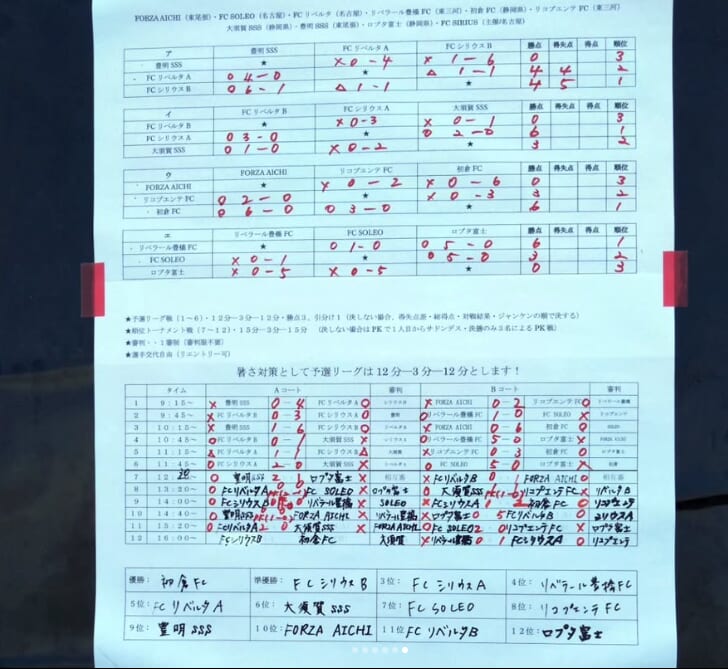 FORZA AICHI（東尾張）・FC SOLEO（名古屋）・FC リベルタ（名古屋）・リベラール豊橋 FC（東三河）・初倉 FC（静岡県）・リコプエンテ FC（東三河）
大須賀 SSS（静岡県）・豊明 SSS（東尾張）・ロプタ富士（静岡県）・FC SIRIUS（主催/名古屋）
ア 豊明 SSS FC リベルタ A FC シリウス B 勝点 得失点 得点 順位
豊明 SSS ★ × 0-4 × 1-6 0 3
FC リベルタ A ○ 4-0 ★ △ 1-1 4 4 2
FC シリウス B ○ 6-1 △ 1-1 ★ 4 5 1
イ FC リベルタ B FC シリウス A 大須賀 SSS 勝点 得失点 得点 順位
FC リベルタ B ★ × 0-3 × 0-1 0 3
FC シリウス A ○ 3-0 ★ ○ 2-0 6 1
大須賀 SSS ○ 1-0 × 0-2 ★ 3 2
ウ FORZA AICHI リコプエンテ FC 初倉 FC 勝点 得失点 得点 順位
FORZA AICHI ★ × 0-2 × 0-6 0 3
リコプエンテ FC ○ 2-0 ★ × 0-3 3 2
初倉 FC ○ 6-0 ○ 3-0 ★ 6 1
エ リベラール豊橋 FC FC SOLEO ロプタ富士 勝点 得失点 得点 順位
リベラール豊橋 FC ★ ○ 1-0 ○ 5-0 6 1
FC SOLEO × 0-1 ★ ○ 5-0 3 2
ロプタ富士 × 0-5 × 0-5 ★ 0 3
★予選リーグ戦（1～6）・12分―3分―12分・勝点3、引分け1（決しない場合、得失点差・総得点・対戦結果・ジャンケンの順で決する）
★順位トーナメント戦（7～12）・15分―3分―15分 （決しない場合は PK で1人目からサドンデス・決勝のみ3名による PK 戦）
★審判・・1審制（審判服不要）
★選手交代自由（リエントリー可）
暑さ対策として予選リーグは 12 分―3 分―12 分とします！
タイム A コート 審判 B コート 審判
1 9:15～ × 豊明 SSS 0-4 FC リベルタ A ○ シリウス B × FORZA AICHI 0-2 リコプエンテ FC ○ リベラール豊橋
2 9:45～ × FC リベルタ B 0-3 FC シリウス A ○ 豊明 ○ リベラール豊橋 FC 1-0 FC SOLEO × リコプエンテ
3 10:15～ × 豊明 SSS 1-6 FC シリウス B ○ × FORZA AICHI 0-6 初倉 FC ○ SOLEO
4 10:45～ FC リベルタ B 0-1 大須賀 SSS シリウス A ○ リベラール豊橋 FC 5-0 ロプタ富士 × FORZA AICHI
5 11:15～ FC リベルタ A 1-1 FC シリウス B 大須賀 × リコプエンテ FC 0-3 初倉 FC ○
6 11:45～ ○ FC シリウス A 2-0 大須賀 SSS × ○ FC SOLEO 5-0 ロプタ富士 × 初倉
7 12:20 ○ 豊明SSS 2 1 ロプタ富士 × 相互審 × FCリベルタB 0 1 FORZA AICHI ○ 相互審
8 13:20～ ○ FCリベルタA FC SOLEO × ロプタ富士 ○ 大須賀SSS リコプエンテFC × リベルタB
9 14:00～ ○ FCシリウスB リベラール豊橋 × SOLEO × FCシリウスA 初倉FC ○ リコプエンテ
10 14:40～ ○ 豊明SSS FORZA AICHI × リベラール豊橋 × ロプタ富士 0 5 FCリベルタB ○ シリウスA
11 15:20～ ○ FCリベルタA 2 0 大須賀SSS × FORZA AICHI ○ FC SOLEO 2 0 リコプエンテFC × ロプタ富士
12 16:00～ FCシリウスB 初倉FC 大須賀 × リベラール豊橋 0 1 FCシリウスA ○ リコプエンテ
優勝： 初倉FC 準優勝： FCシリウスB 3位： FC シリウスA 4位： リベラール豊橋FC
5位： FC リベルタA 6位： 大須賀SSS 7位： FC SOLEO 8位： リコプエンテFC
9位： 豊明SSS 10位： FORZA AICHI 11位 FC リベルタB 12位： ロプタ富士